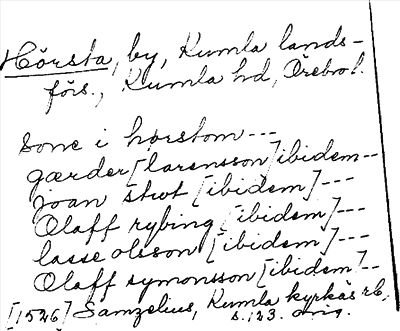 Hörsta, by, Kumla lands-
förs., Kumla hd, Örebro l.
sone i horstom ---
gærder [larensson] ibidem --
joan strot [ibidem] ---
Olaff rybing [ibidem] ---
lasse olsson [ibidem] ---
Olaff symonsson [ibidem] --
[1526] Samzelius, Kumla kyrkas rb,
s. 123. orig.